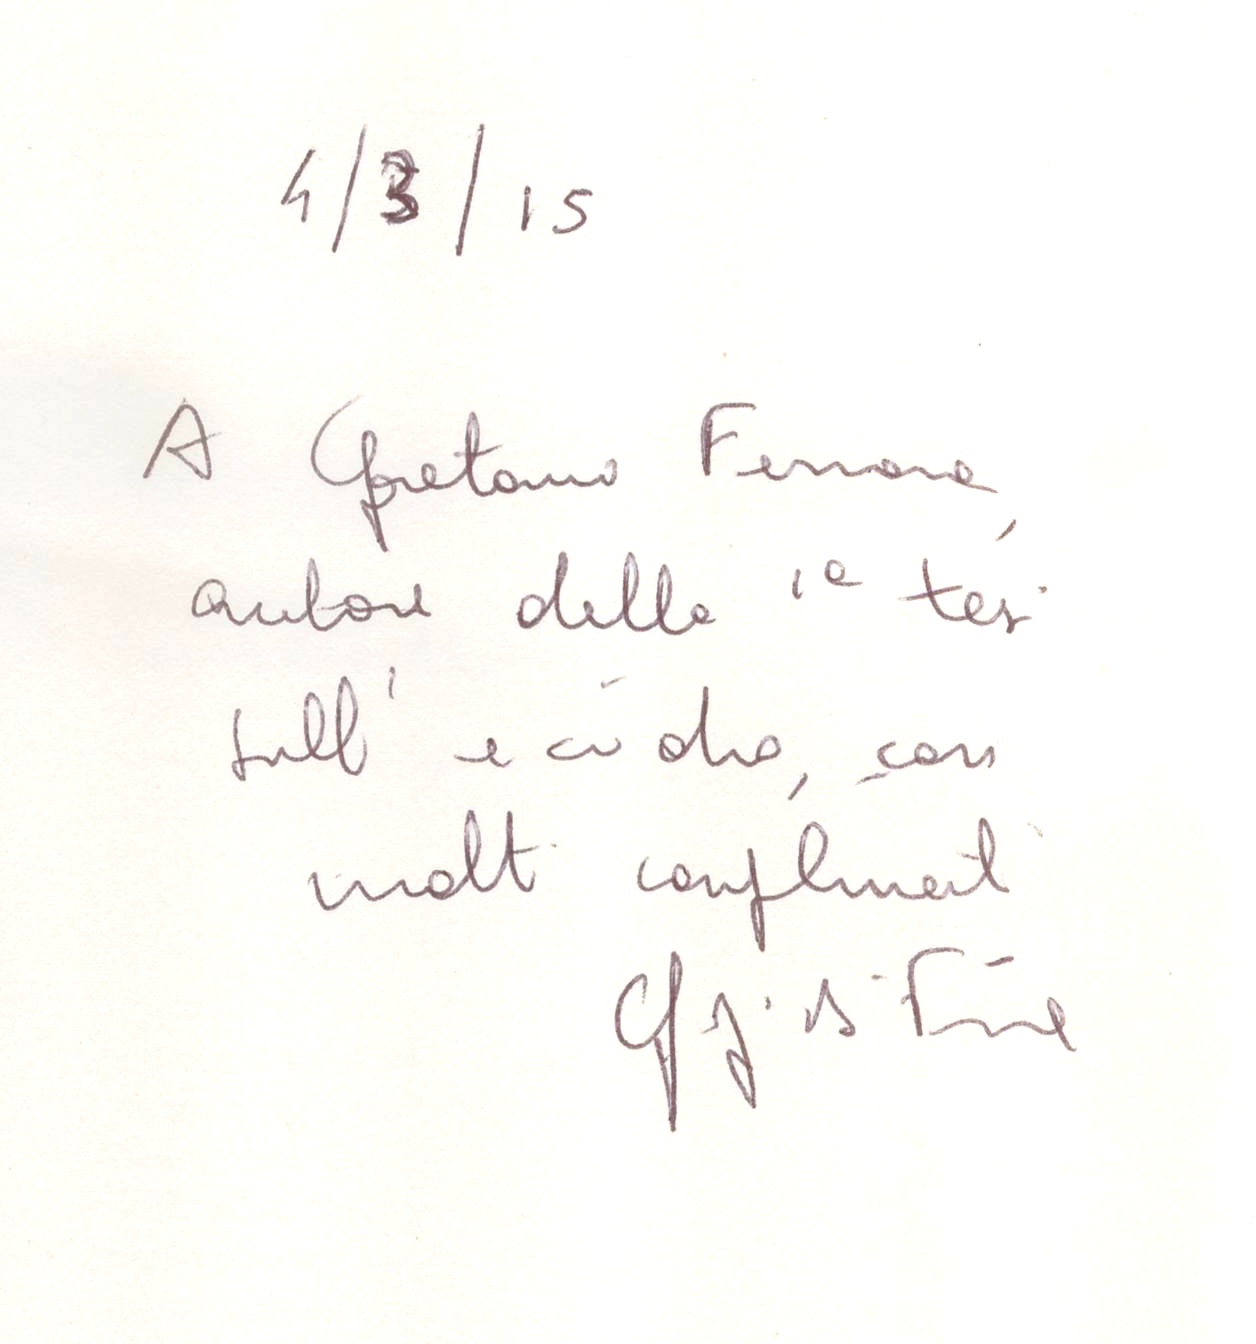 4/3/15
A Gaetano Ferrara,
autore della 1a tesi
sull' ecidio, con
molti complimenti